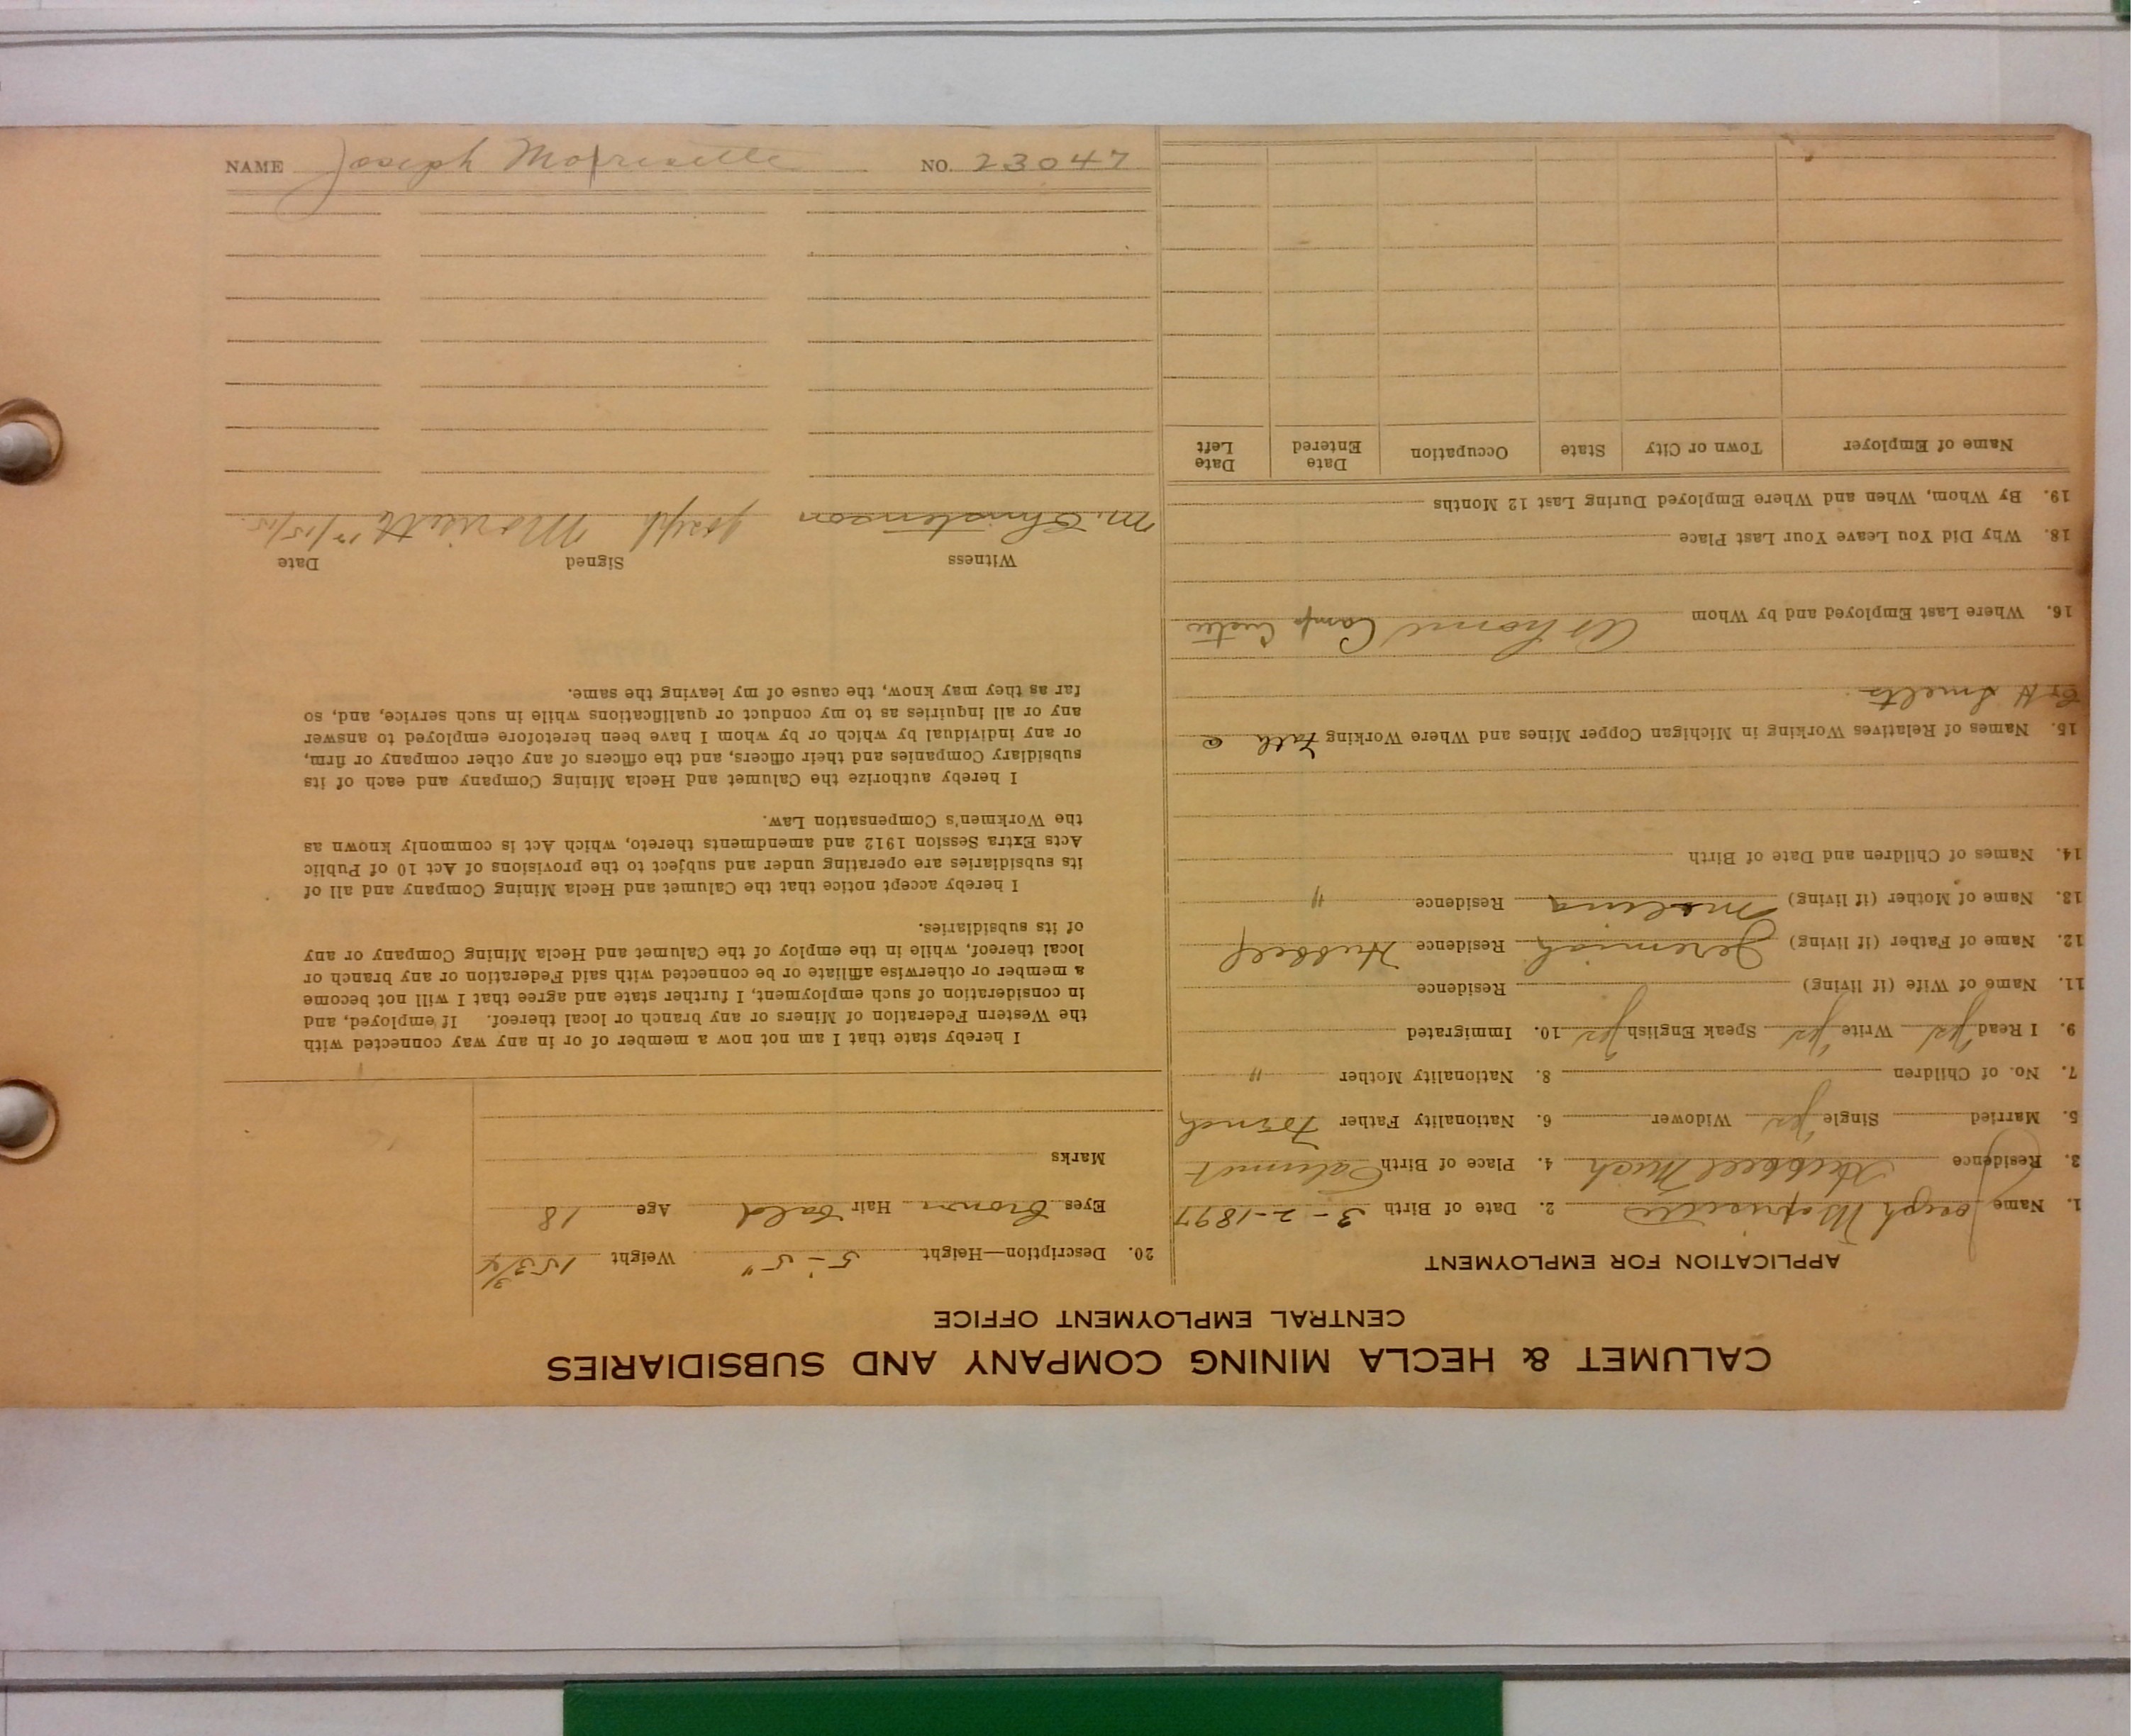 CALUMET & HECLA MINING COMPANY AND SUBSIDIARIES
CENTRAL EMPLOYMENT OFFICE
APPLICATION FOR EMPLOYMENT
1. Name Joseph 2. Date of Birth 3-2-1897
3. Residence Hubbell Mich 4. Place of Birth Calumet
5. Married Single yes Widower 6. Nationality Father French
7. No. of Children 8. Nationality Mother "
9. I Read yes Write yes Speak English yes 10. Immigrated
11. Name of Wife (if living) Residence
12. Name of Father (if living) Jeremiah Residence Hubbell
13. Name of Mother (if living) Residence "
14. Names of Children and Date of Birth
15. Names of Relatives Working in Michigan Copper Mines and Where Working
C & H Smelts
16. Where Last Employed and by Whom At home Camp
18. Why Did You Leave Your Last Place
19. By Whom, When and Where Employed During Last 12 Months
Name of Employer Town or City State Occupation Date Entered Date Left
20. Description—Height 5-5" Weight 153/4
Eyes Brown Hair Age 18
Marks
I hereby state that I am not now a member of or in any way connected with
the Western Federation of Miners or any branch or local thereof. If employed, and
in consideration of such employment, I further state and agree that I will not become
a member or otherwise affiliate or be connected with said Federation or any branch or
local thereof, while in the employ of the Calumet and Hecla Mining Company or any
of its subsidiaries.
I hereby accept notice that the Calumet and Hecla Mining Company and all of
its subsidiaries are operating under and subject to the provisions of Act 10 of Public
Acts Extra Session 1912 and amendments thereto, which Act is commonly known as
the Workmen's Compensation Law.
I hereby authorize the Calumet and Hecla Mining Company and each of its
subsidiary Companies and their officers, and the officers of any other company or firm,
or any individual by which or by whom I have been heretofore employed to answer
any or all inquiries as to my conduct or qualifications while in such service, and, so
far as they may know, the cause of my leaving the same.
Witness Signed Date
M. Christenson Joseph
NAME Joseph NO. 23047